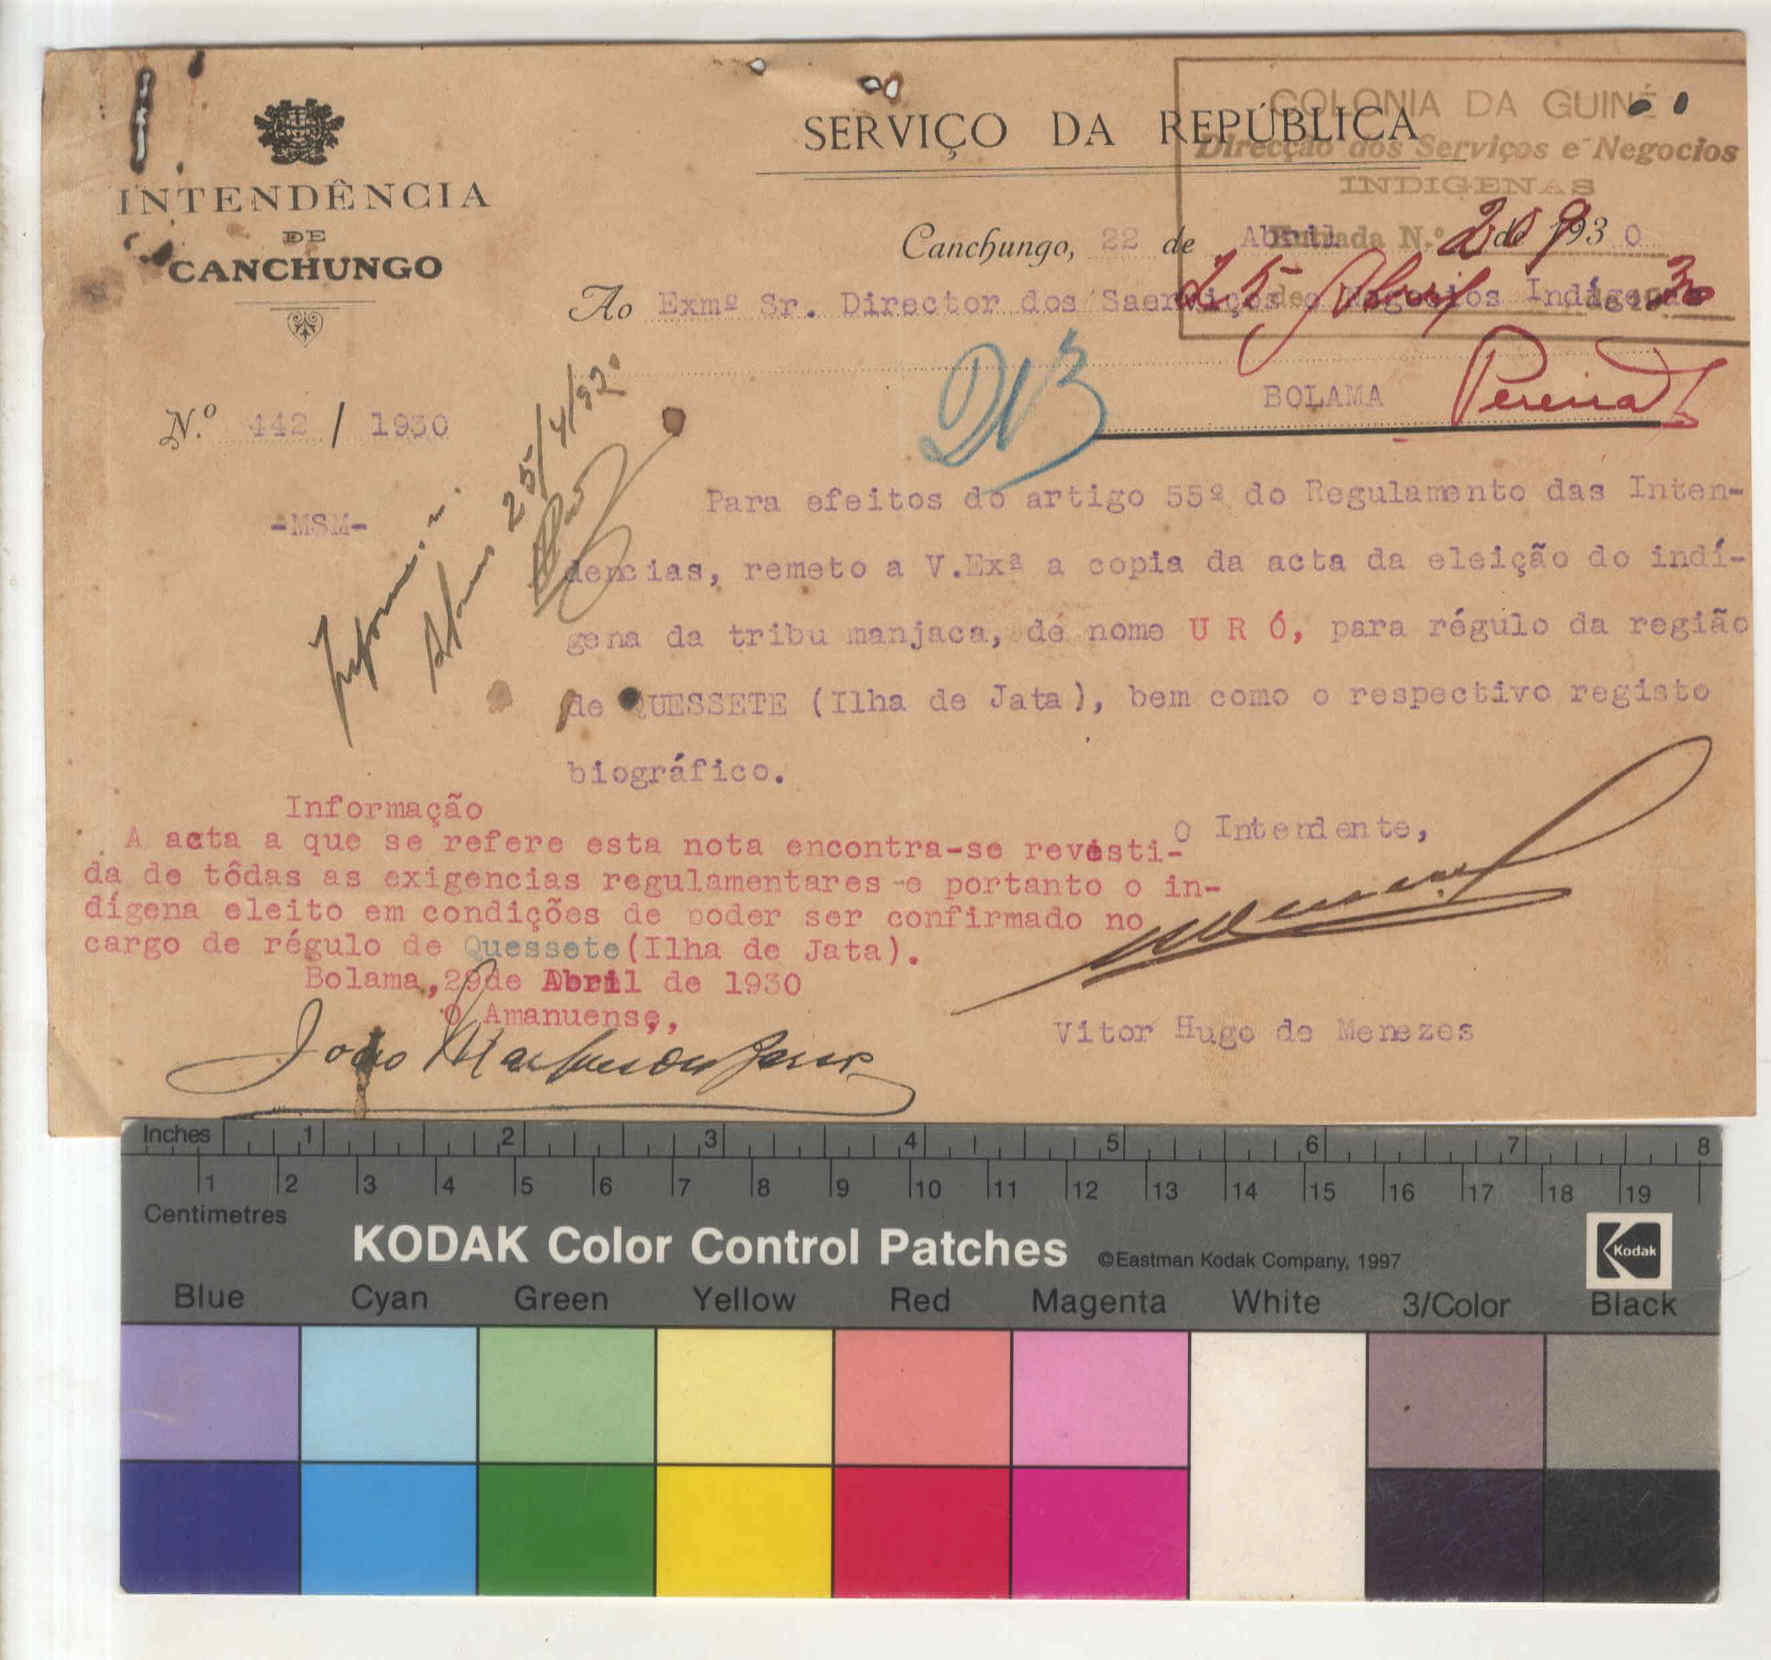 INTENDÊNCIA
DE
CANCHUNGO
SERVIÇO DA REPÚBLICA
COLONIA DA GUINÉ
Direcção dos Serviços e Negocios
INDIGENAS
Entrada N.º 209
25 de Abril de 1930
Pereira
Canchungo, 22 de Abril de 1930
Ao Exmº Sr. Director dos Saerviços e Negocios Indígenas
BOLAMA
N.º 442 / 1930
-MSM-
25/4/
Para efeitos do artigo 55º do Regulamento das Inten-
dencias, remeto a V.Exª a copia da acta da eleição do indí-
gena da tribu manjaca, de nome U R Ó, para régulo da região
de QUESSETE (Ilha de Jata), bem como o respectivo registo
biográfico.
O Intendente,
Vitor Hugo de Menezes
Informação
A acta a que se refere esta nota encontra-se revesti-
da de tôdas as exigencias regulamentares e portanto o in-
dígena eleito em condições de poder ser confirmado no
cargo de régulo de Quessete(Ilha de Jata).
Bolama,29de Abril de 1930
O Amanuense,
João
Inches 1 2 3 4 5 6 7 8
1 2 3 4 5 6 7 8 9 10 11 12 13 14 15 16 17 18 19
Centimetres
KODAK Color Control Patches ©Eastman Kodak Company, 1997
Kodak
Blue Cyan Green Yellow Red Magenta White 3/Color Black